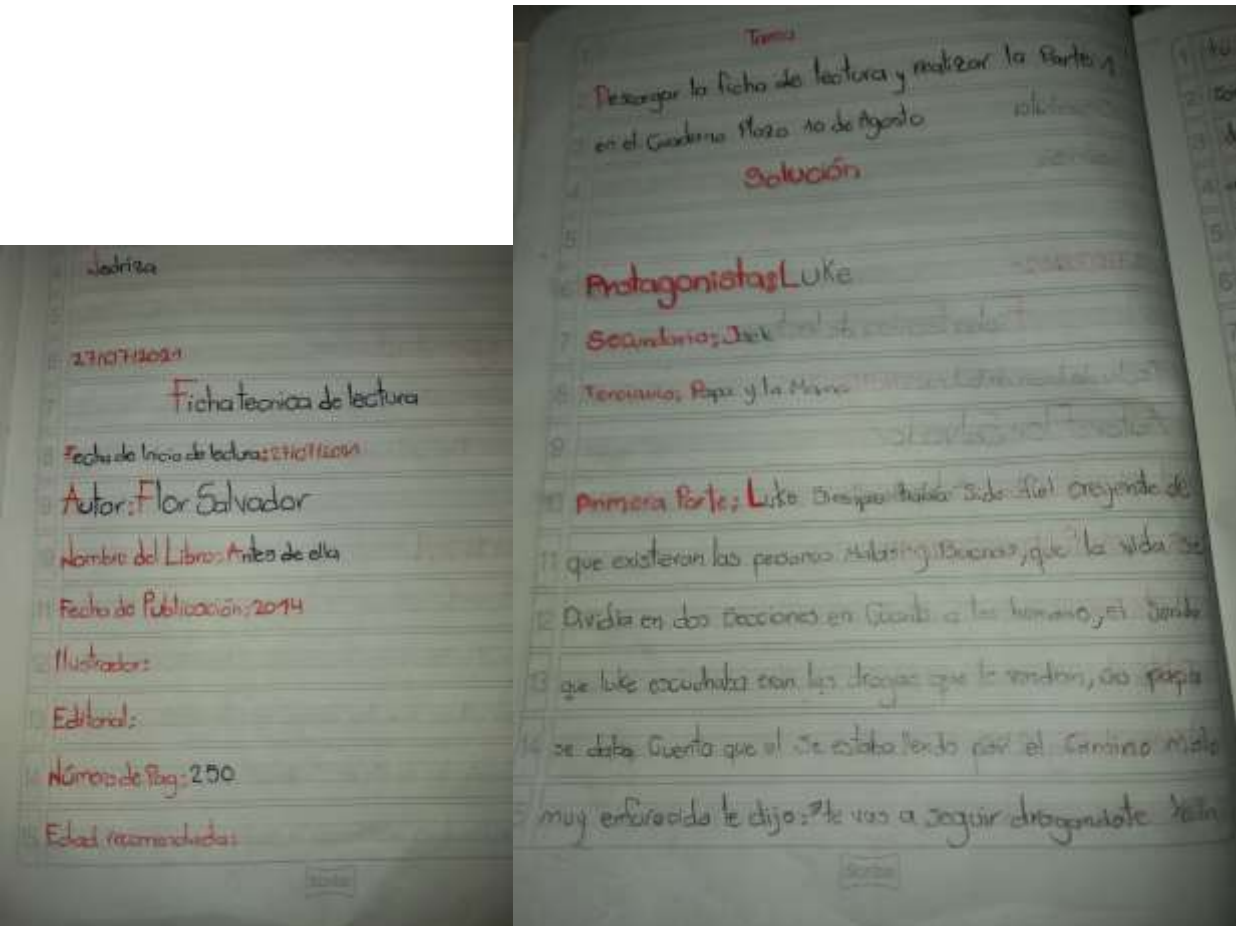 Nodriza
27/07/2021
Ficha tecnica de lectura
Fecha de Inicio de lectura: 27/07/2021
Autor: Flor Salvador
Nombre del Libro: Antes de ella
Fecha de Publicación: 2014
Ilustrador:
Editorial:
Número de Pag: 250
Edad recomendada:
Tarea
Descargar la ficha de lectura y realizar la Parte 1
en el Cuaderno Plazo 10 de Agosto
Solución
Protagonistas: Luke
Secundario:
Terciario: Papa y la Mama
Primera Parte: Luke Siempre había Sido fiel creyente de
que existieran las personas Malas y Buenas, que la vida se
Dividia en dos Secciones en Cuanto a los humano, el
que luke escuchaba con las drogas que le, su papa
se daba Cuenta que el Se estaba llendo por el Camino Malo
muy enfurecido le dijo: "te vas a seguir drogandote